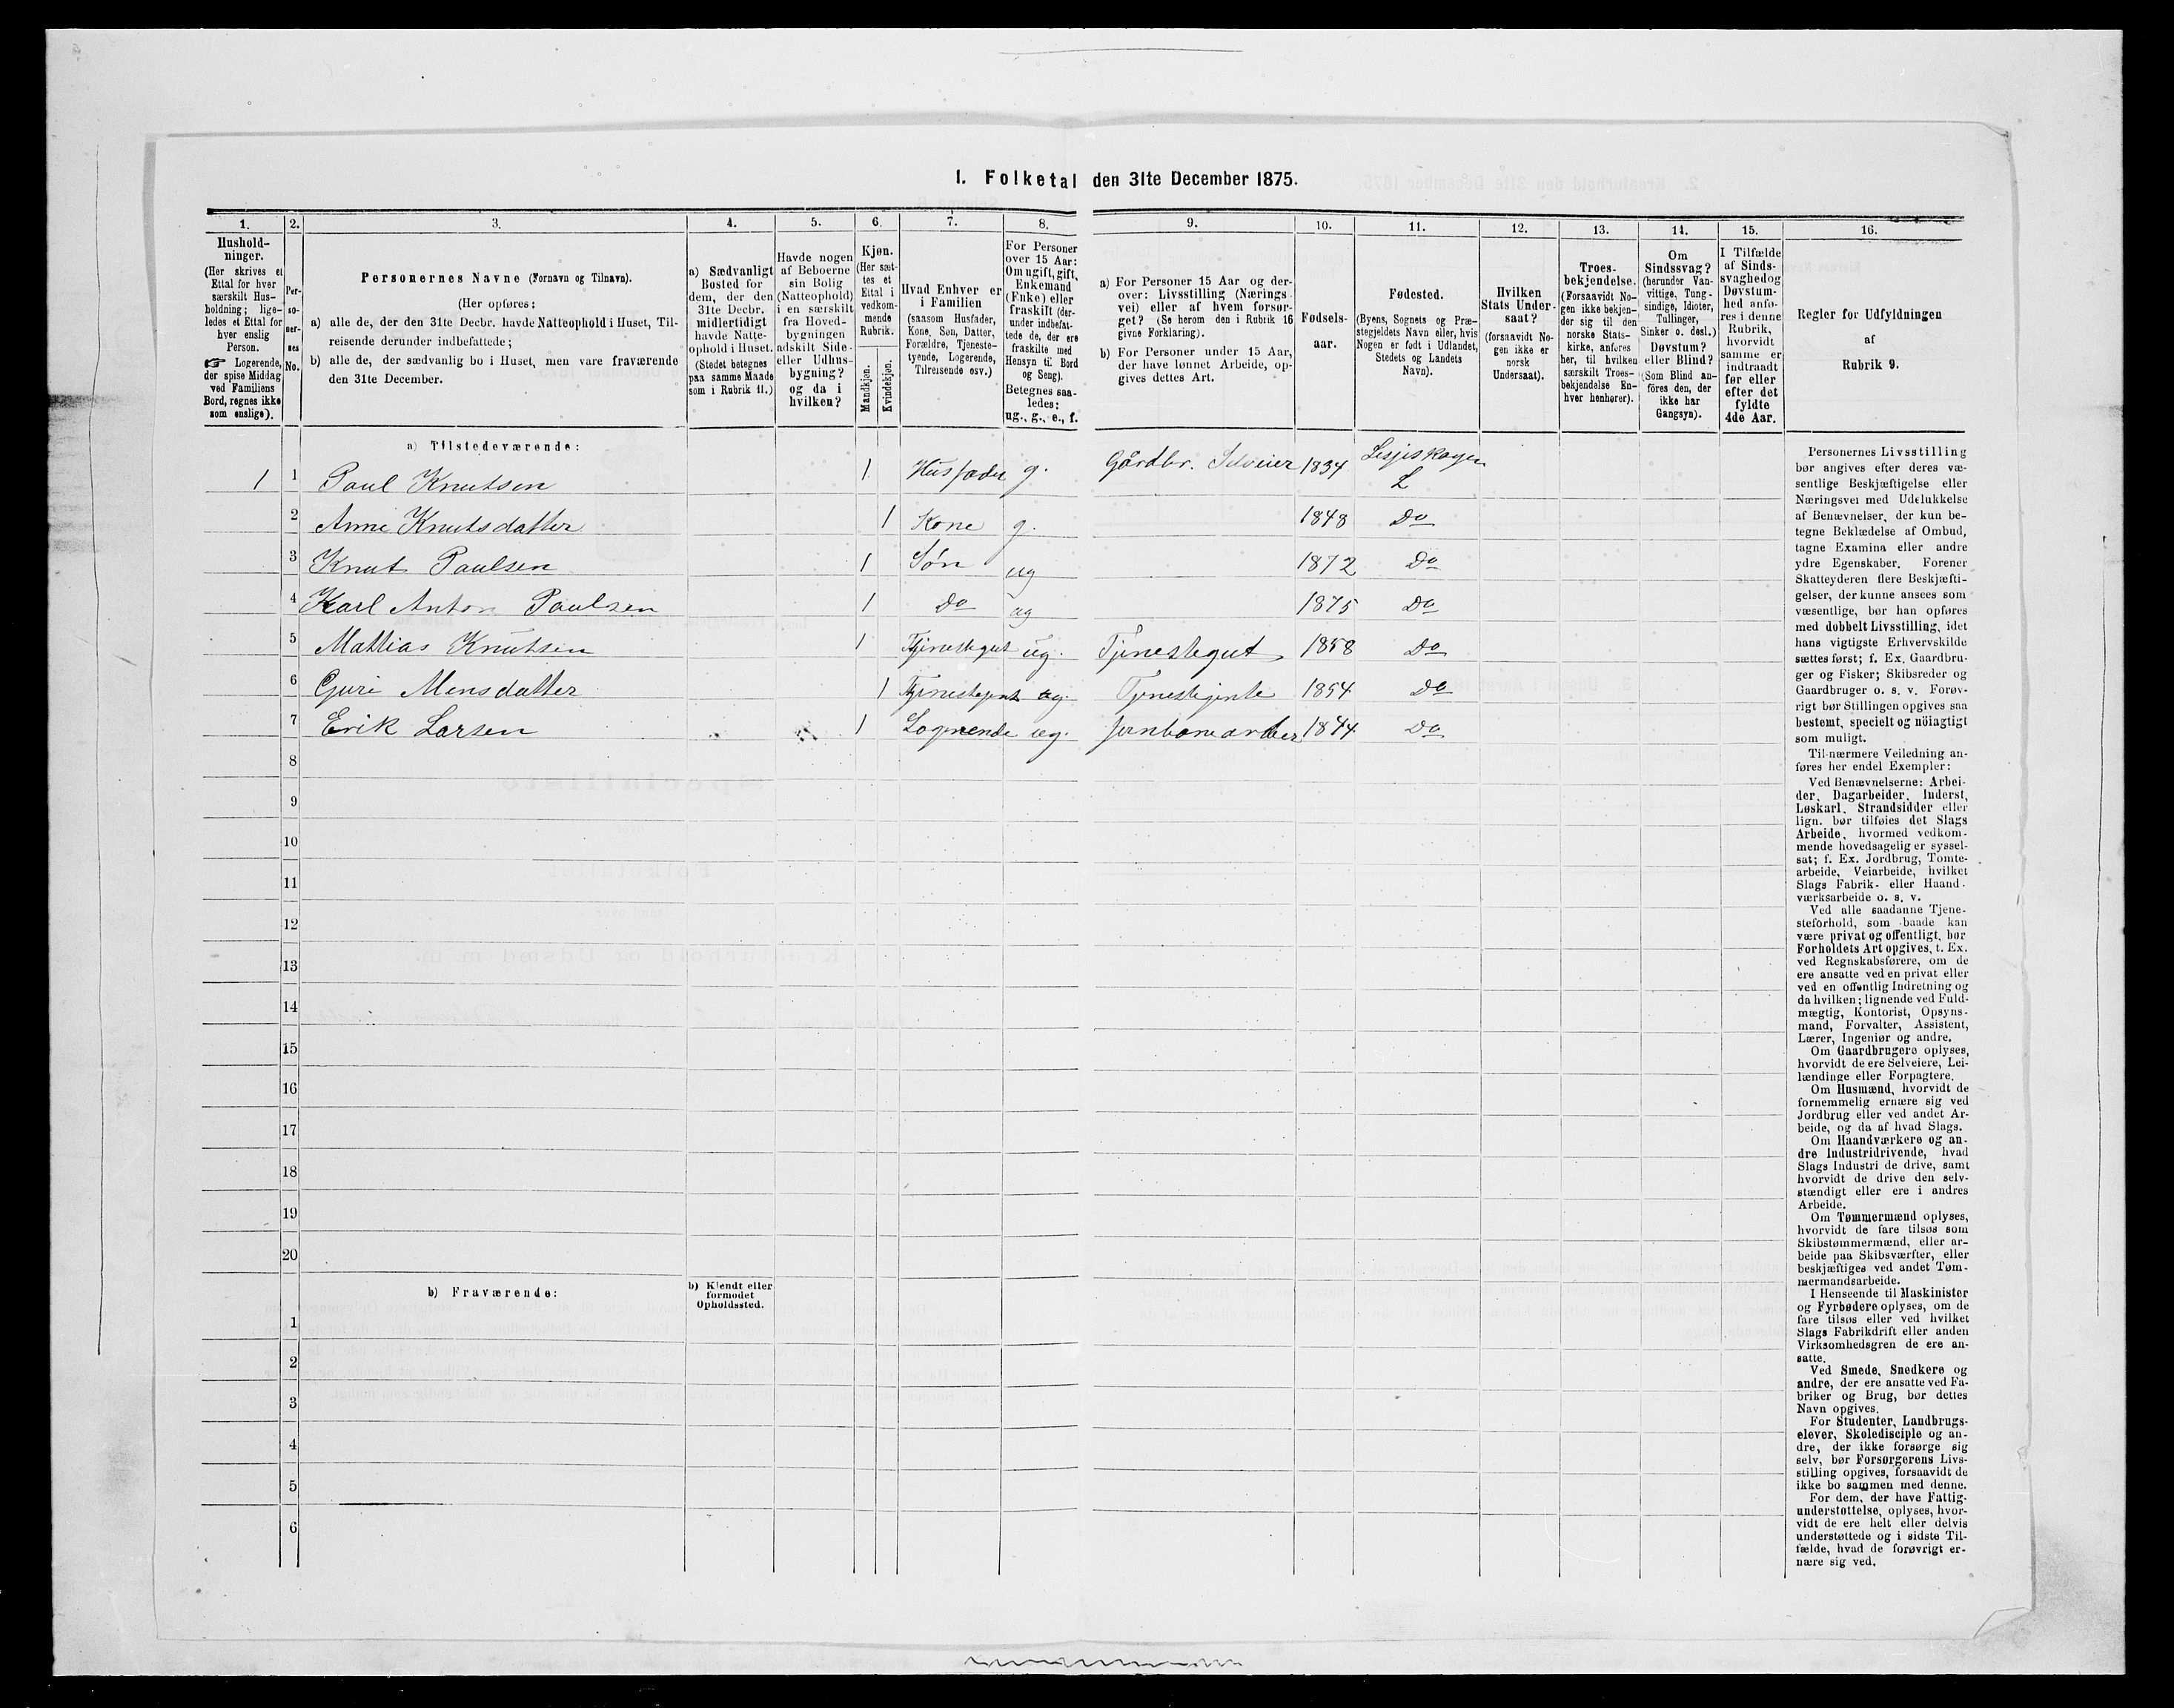 I. Folketal den 31te December 1875.
1. 2. 3. 4. 5. 6. 7. 8. 9. 10. 11. 12. 13. 14. 15. 16.
Hushold-
ninger.
(Her skrives et
Ettal for hver
særskilt Hus-
holdning; lige-
ledes et Ettal for
hver enslig
Person.
☞ Logerende,
der spise Middag
ved Familiens
Bord, regnes ikke
som enslige).
Per-
so-
ner-
nes
No.
Personernes Navne (Fornavn og Tilnavn).
(Her opføres:
a) alle de, der den 31te Decbr. havde Natteophold i Huset, Til-
reisende derunder indbefattede;
b) alle de, der sædvanlig bo i Huset, men vare fraværende
den 31te December.
a) Sædvanligt
Bosted for
dem, der den
31te Decbr.
midlertidigt
havde Natte-
ophold i Huset.
(Stedet betegnes
paa samme Maade
som i Rubrik 11.)
Havde nogen
af Beboerne
sin Bolig
(Natteophold)
i en særskilt
fra Hoved-
bygningen
adskilt Side-
eller Udhus-
bygning?
og da i
hvilken?
Kjøn.
(Her sæt-
tes et
Ettal i
vedkom-
mende
Rubrik.
Mandkjøn.
Kvindekjøn.
Hvad Enhver er
i Familien
(saasom Husfader,
Kone, Søn, Datter,
Forældre, Tjeneste-
tyende, Logerende,
Tilreisende osv.)
For Personer
over 15 Aar:
Om ugift, gift,
Enkemand
(Enke) eller
fraskilt (der-
under indbefat-
tede de, der ere
fraskilte med
Hensyn til Bord
og Seng).
Betegnes saa-
ledes:
ug., g., e., f.
a) For Personer 15 Aar og der-
over: Livsstilling (Nærings-
vei) eller af hvem forsør-
get? (Se herom den i Rubrik 16
givne Forklaring).
b) For Personer under 15 Aar,
der have lønnet Arbeide, op-
gives dettes Art.
Fødsels-
aar.
Fødested.
(Byens, Sognets og Præ-
stegjeldets Navn eller, hvis
Nogen er født i Udlandet,
Stedets og Landets
Navn).
Hvilken
Stats Under-
saat?
(forsaavidt No-
gen ikke er
norsk
Undersaat).
Troes-
bekjendelse.
(Forsaavidt No-
gen ikke bekjen-
der sig til den
norske Stats-
kirke, anføres
her, til hvilken
særskilt Troes-
bekjendelse En-
hver henhører).
Om
Sindssvag?
(herunder Van-
vittige, Tung-
sindige, Idioter,
Tullinger,
Sinker o. desl.)
Døvstum?
eller Blind?
(Som Blind an-
føres den, der
ikke har
Gangsyn).
I Tilfælde
af Sinds-
svaghedog
Døvstum-
hed anfø-
res i denne
Rubrik,
hvorvidt
samme er
indtraadt
før eller
efter det
fyldte
4de Aar.
Regler for Udfyldningen
af
Rubrik 9.
a) Tilstedeværende:
1 1 Paul Knutsen 1 Husfader g. Gårdbr. Selveier 1834 Lesjeskogen L
2 Anne Knutsdatter 1 Kone g. 1848 Do
3 Knut Paulsen 1 Søn ug 1872 Do
4 Karl Anton Paulsen 1 Do ug 1875 Do
5 Mathias Knutsen 1 Tjenestegut ug. Tjenestegut 1858 Do
6 Guri Monsdatter 1 Tjenestejente ug. Tjenestejente 1854 Do
7 Erik Larsen 1 Logerende ug. Jernbanearbeier 1844 Do
8
9
10
11
12
13
14
15
16
17
18
19
20
b) Fraværende:
b) Kjendt eller
formodet
Opholdssted.
1
2
3
4
5
6
Personernes Livsstilling
bør angives efter deres væ-
sentlige Beskjæftigelse eller
Næringsvei med Udelukkelse
af Benævnelser, der kun be-
tegne Beklædelse af Ombud,
tagne Examina eller andre
ydre Egenskaber. Forener
Skatteyderen flere Beskjæfti-
gelser, der kunne ansees som
væsentlige, bør han opføres
med dobbelt Livsstilling, idet
hans vigtigste Erhvervskilde
sættes først; f. Ex. Gaardbru-
ger og Fisker; Skibsreder og
Gaardbruger o. s. v. Forøv-
rigt bør Stillingen opgives saa
bestemt, specielt og nöiagtigt
som muligt.
Til nærmere Veiledning an-
føres her endel Exempler:
Ved Benævnelserne: Arbei-
der, Dagarbeider, Inderst,
Løskarl, Strandsidder eller
lign. bør tilføies det Slags
Arbeide, hvormed vedkom-
mende hovedsagelig er syssel-
sat; f. Ex. Jordbrug, Tomte-
arbeide, Veiarbeide, hvilket
Slags Fabrik- eller Haand-
værksarbeide o. s. v.
Ved alle saadanne Tjene-
steforhold, som baade kan
være privat og offentligt, bør
Forholdets Art opgives, t. Ex.
ved Regnskabsførere, om de
ere ansatte ved en privat eller
ved en offentlig Indretning og
da hvilken; lignende ved Fuld-
mægtig, Kontorist, Opsyns-
mand, Forvalter, Assistent,
Lærer, Ingeniør og andre.
Om Gaardbrugere oplyses,
hvorvidt de ere Selveiere, Lei-
lændinge eller Forpagtere.
Om Husmænd, hvorvidt de
fornemmelig ernære sig ved
Jordbrug eller ved andet Ar-
beide, og da af hvad Slags.
Om Haandværkere og an-
dre Industridrivende, hvad
Slags Industri de drive, samt
hvorvidt de drive den selv-
stændigt eller ere i andres
Arbeide.
Om Tømmermænd oplyses,
hvorvidt de fare tilsøs som
Skibstømmermænd, eller ar-
beide paa Skibsværfter, eller
beskjæftiges ved andet Tøm-
mermandsarbeide.
I Henseende til Maskinister
og Fyrbødere oplyses, om de
fare tilsøs eller ved hvilket
Slags Fabrikdrift eller anden
Virksomhedsgren de ere an-
satte.
Ved Smede, Snedkere og
andre, der ere ansatte ved Fa-
briker og Brug, bør dettes
Navn opgives.
For Studenter, Landbrugs-
elever, Skoledisciple og an-
dre, der ikke forsørge sig
selv, bør Forsørgerens Livs-
stilling opgives, forsaavidt de
ikke bo sammen med denne.
For dem, der have Fattig-
understøttelse, oplyses, hvor-
vidt de ere helt eller delvis
understøttede og i sidste Til-
fælde, hvad de forøvrigt er-
nære sig ved.